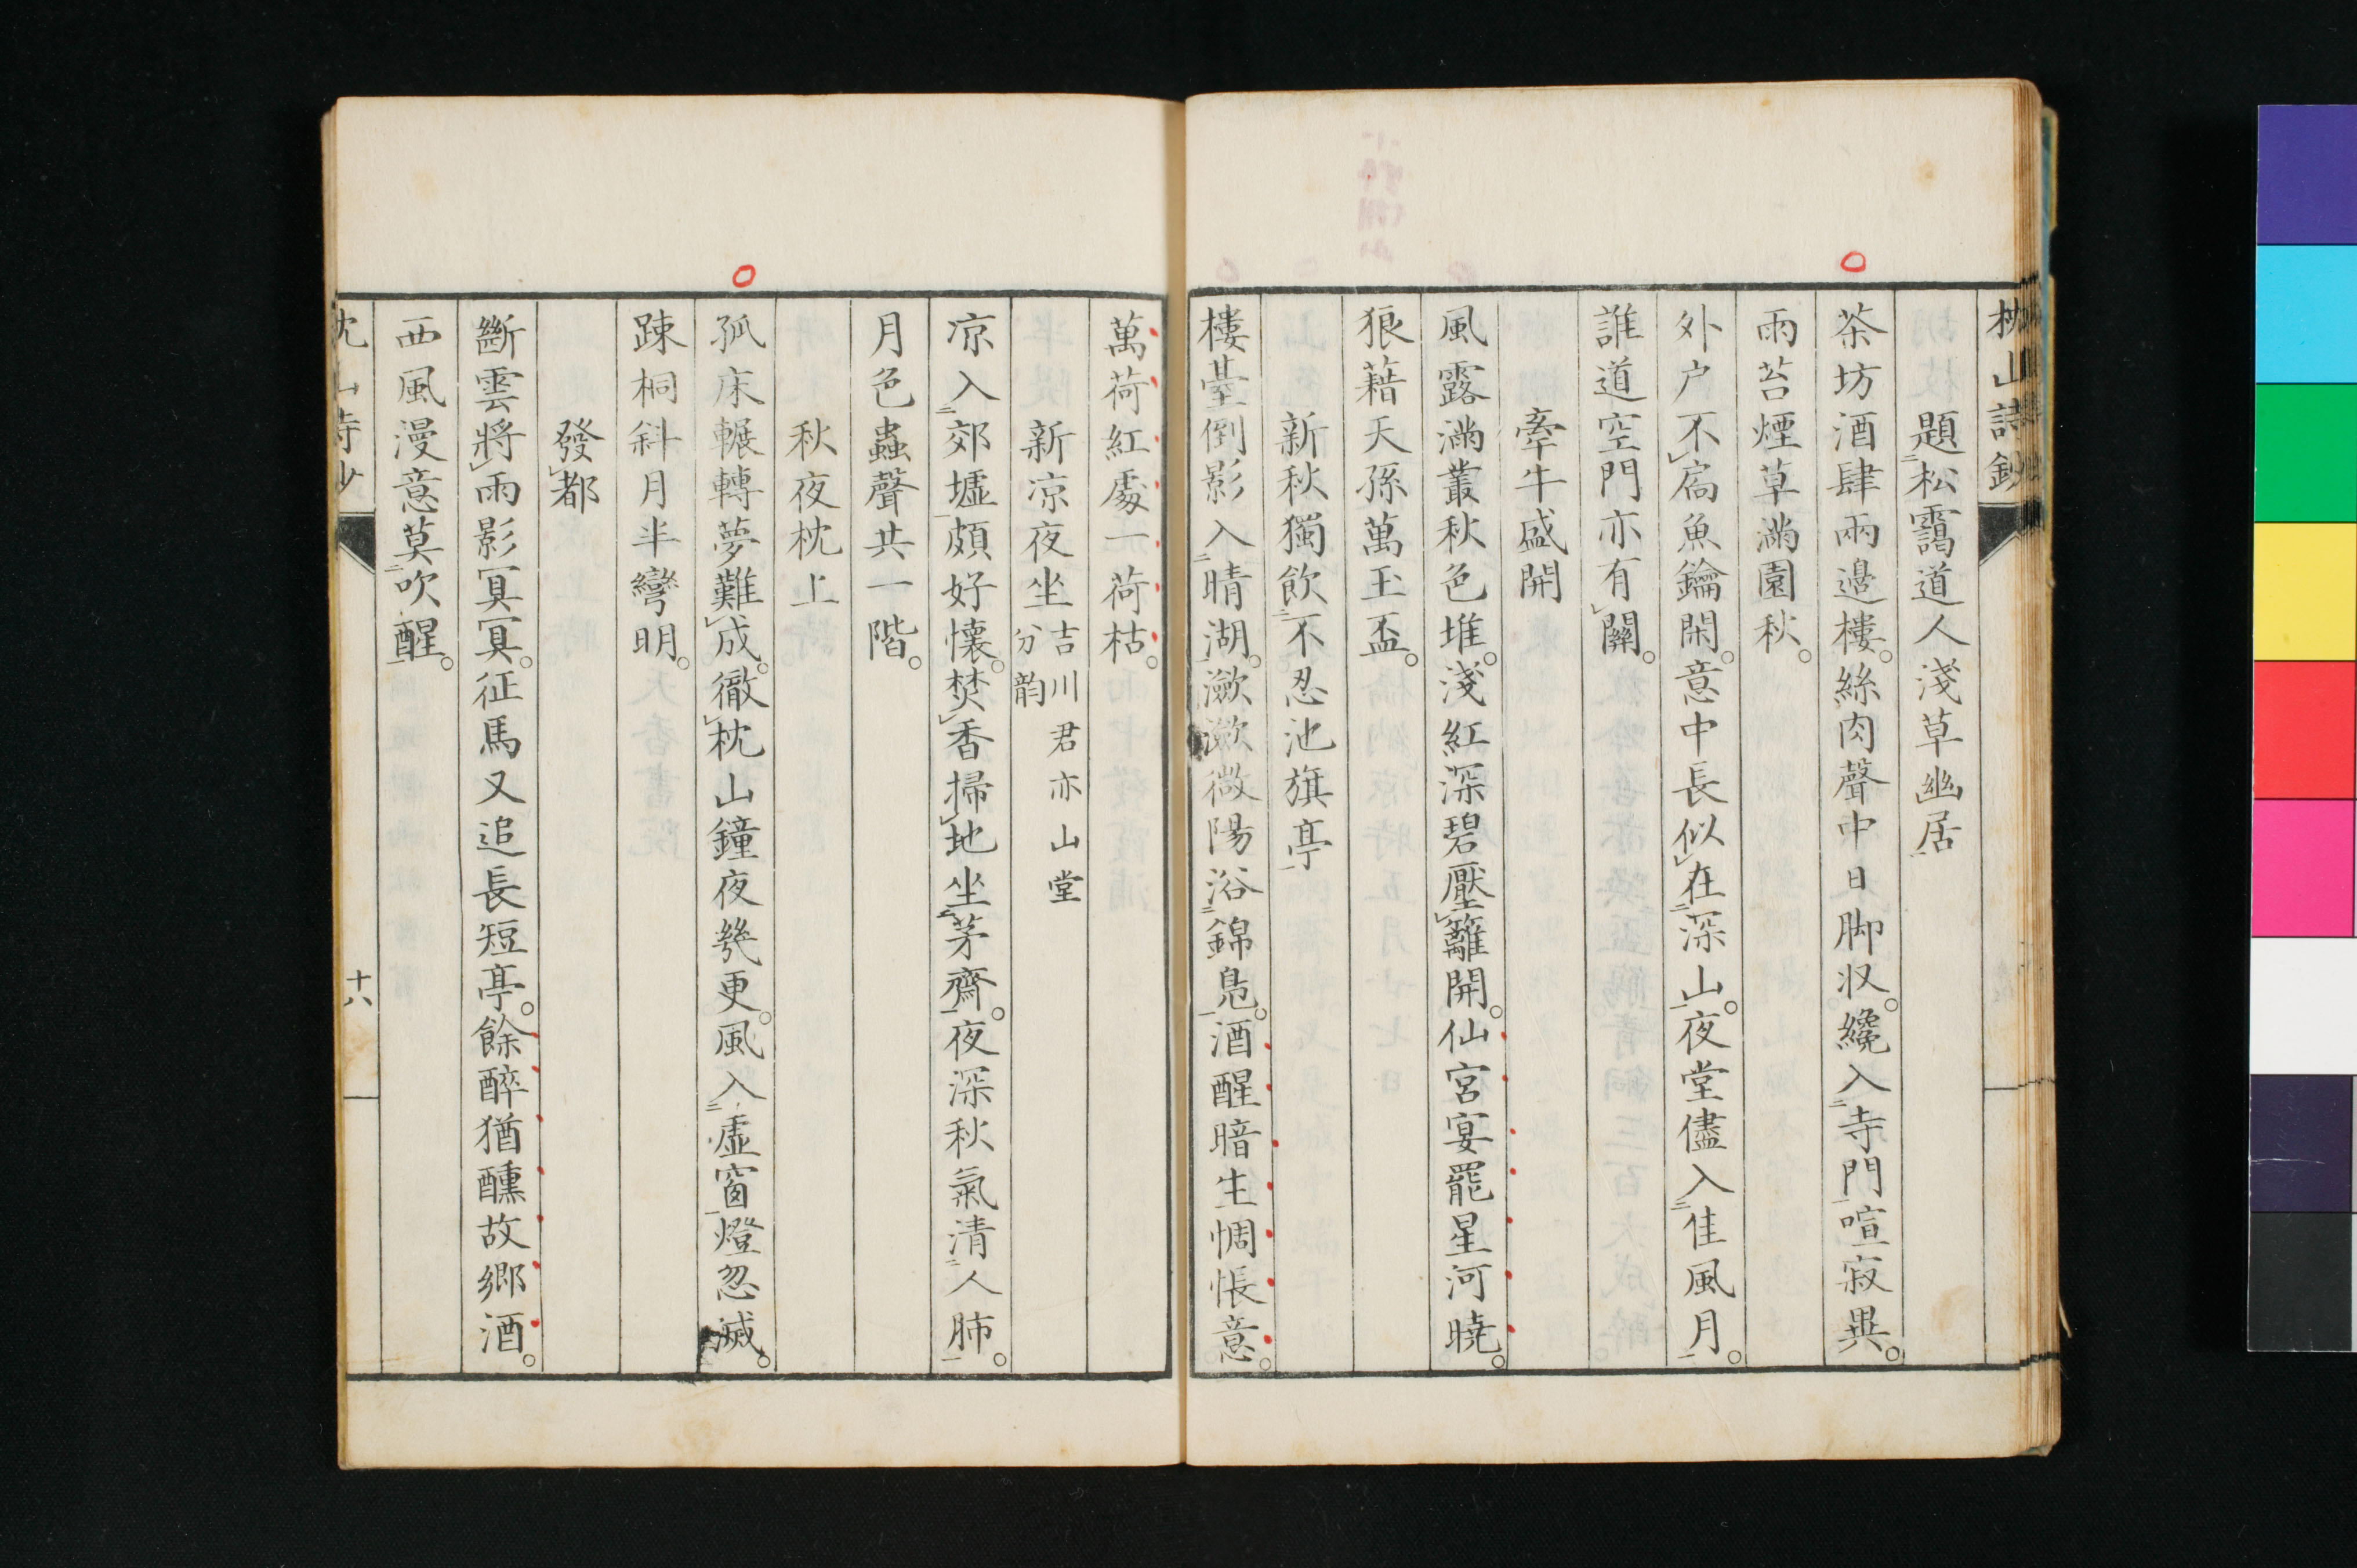 枕山詩鈔
題松靄道人淺草幽居
茶坊酒肆兩邊樓。絲肉聲中日脚收。纔入寺門喧寂異。
雨苔煙草滿園秋。
外户不扃魚鑰閑。意中長似在深山。夜堂儘入佳風月。
誰道空門亦有關。
牽牛盛開
風露滿叢秋色堆。淺紅深碧壓籬開。仙宮宴罷星河曉。
狼藉天孫萬玉盃。
新秋獨飲不忍池旗亭
樓臺倒影入晴湖。瀲瀲微陽浴錦鳬。酒醒暗生惆悵意。
萬荷紅處一荷枯。
新凉夜坐吉川君亦山堂分韵
凉入郊墟頗好懷。焚香掃地坐茅齋。夜深秋氣清人肺。
月色蟲聲共一階。
秋夜枕上
孤床輾轉夢難成。徹枕山鐘夜幾更。風入虛窗燈忽滅。
踈桐斜月半彎明。
發都
斷雲將雨影冥冥。征馬又追長短亭。餘醉猶醺故鄉酒。
西風漫意莫吹醒。
十八